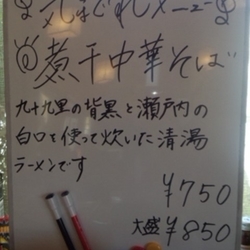 気まぐれメニュー
煮干中華そば
九十九里の背黒と瀬戸内の
白口を使って炊いた清湯
ラーメンです
¥750
大盛¥850